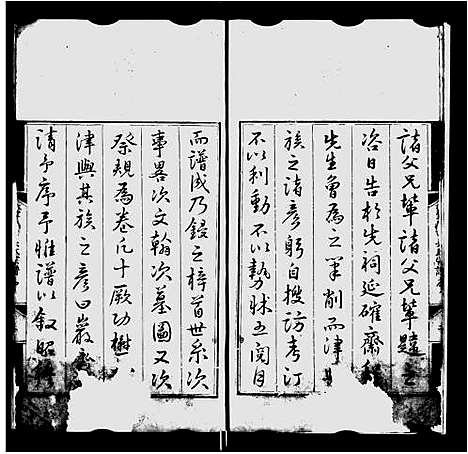 諸父兄輩諸父兄輩韙之
洛日告於先祠延確齋
先生曾為之筆削而津
族之諸彦躬自搜訪考訂
不以利動不以勢怵五閱月
而譜成乃鋟之梓首世系次
事畧次文翰次墓圖又次
祭規為卷凡十厥功
津與其族之彦曰巖
請予序予惟譜以敘昭